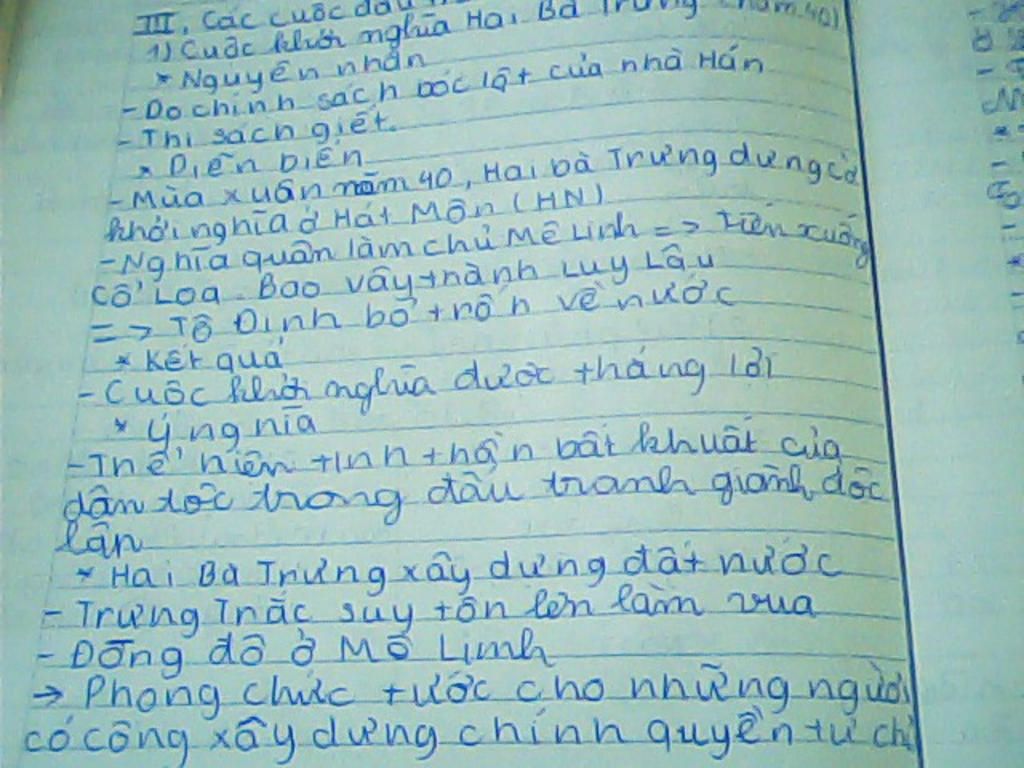 III, Các cuộc đấu
1) Cuộc khởi nghĩa Hai Bà Trưng (năm 40)
* Nguyên nhân
- Do chính sách bóc lột của nhà Hán
- Thi sách giết.
* Diễn Diễn
- Mùa xuân năm 40, Hai bà Trưng dưng cờ
khởi nghĩa ở Hát Môn (HN)
- Nghĩa quân làm chủ Mê Linh => tiến xuống
Cổ Loa. Bao vây thành Luy Lâu
=> Tô Định bỏ trốn về nước
* Kết quả
- Cuộc khởi nghĩa được thắng lợi
* ý nghĩa
- Thể hiện tinh thần bất khuất của
dân tộc trong đấu tranh giành độc
lân
* Hai Bà Trưng xây dưng đất nước
- Trưng Trắc suy tôn lên làm vua
- Đóng đô ở Mê Linh
-> Phong chức tước cho những người
có công xây dưng chính quyền tư chủ